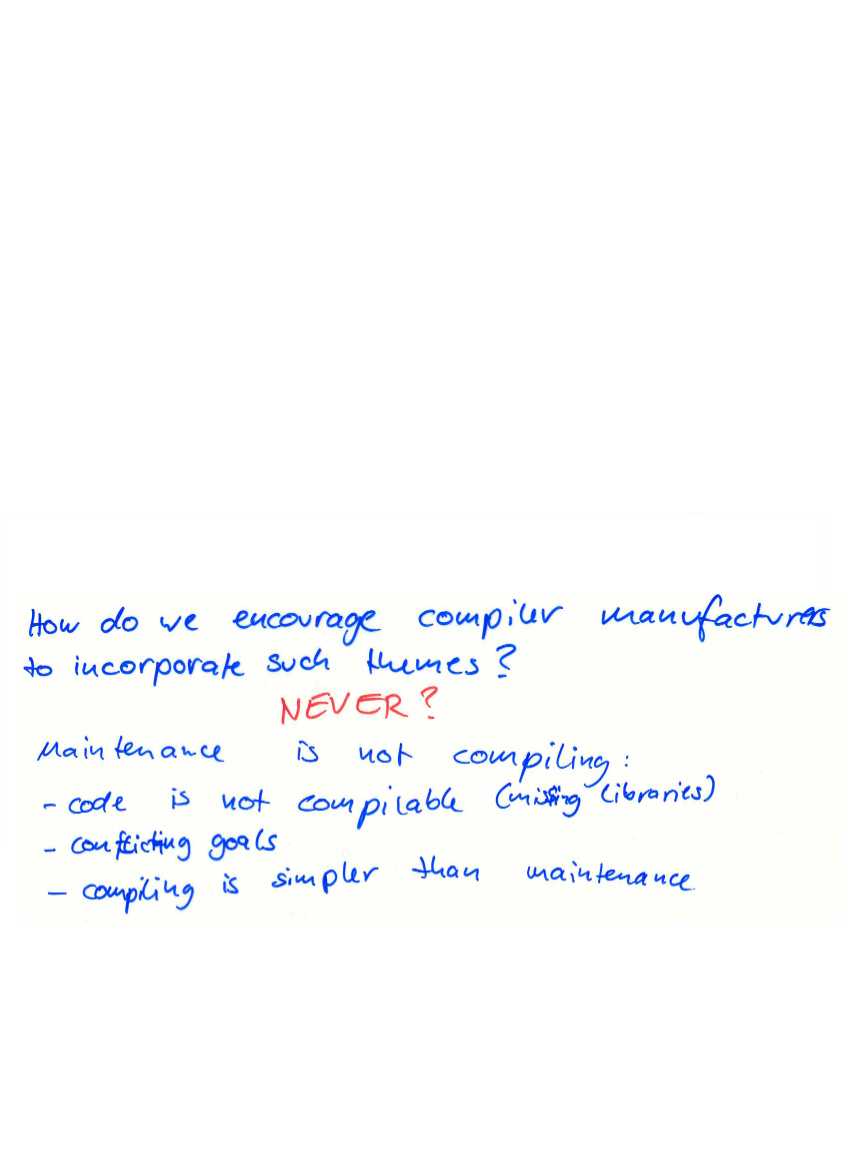 How do we encourage compiler manufacturers
to incorporate such themes?
NEVER?
Maintenance is not compiling:
- code is not compilable (missing libraries)
- conflicting goals
- compiling is simpler than maintenance